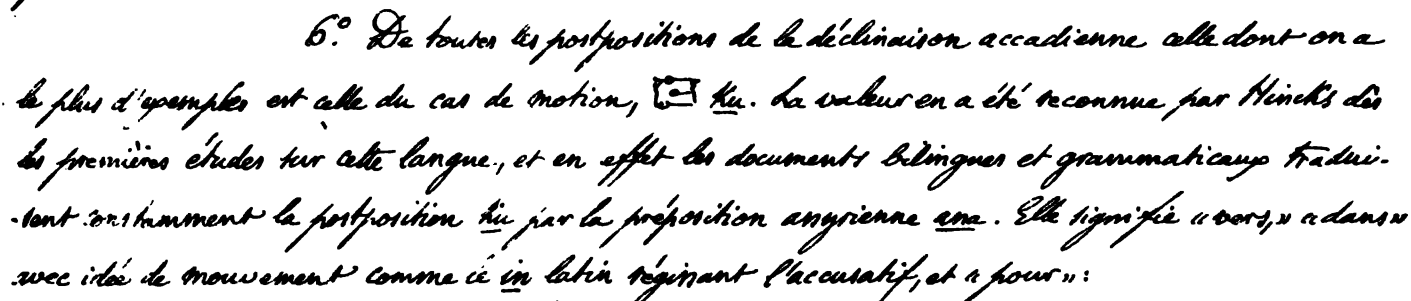 6.° De toutes les postpositions de la déclinaison accadienne celle dont on a
le plus d'exemples est celle du cas de motion, 𒆪 ku. La valeur en a été reconnue par Hincks dès
les premières études sur cette langue, et en effet les documents bilingues et grammaticaux tradui-
-sent constamment la postposition ku par la préposition assyrienne ana. Elle signifie « vers, » « dans »
avec idée de mouvement comme le in latin régissant l'accusatif, et « pour » :